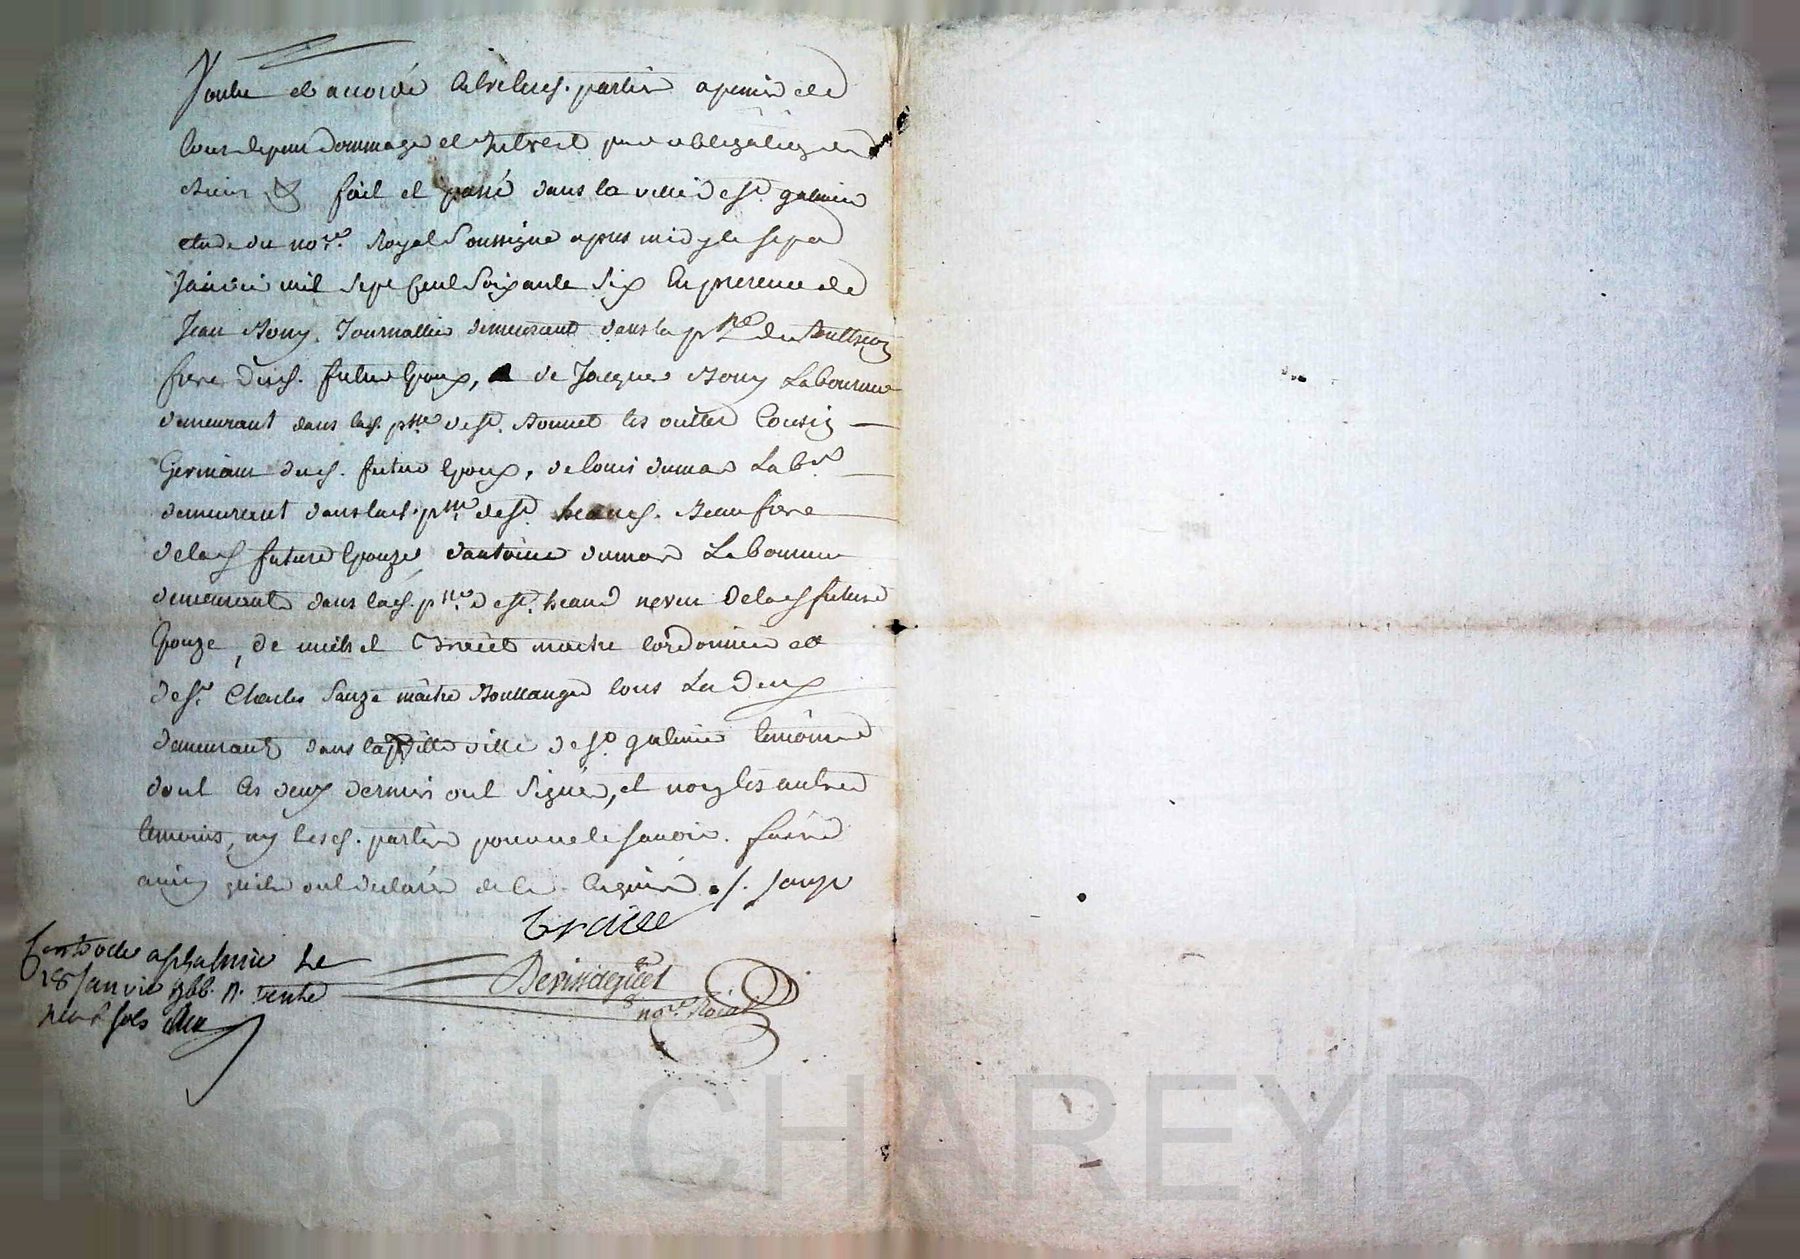 toute et accordé entre lesd. parties a peine de
tous depens dommages et interest par obligation de
biens & fait et passé dans la ville de st. galmier
etude du nore. Royal Soussigné apres midy le sept
Janvier mil sept cent soixante six en presence de
Jean Mony Journallier demeurant dans la pse. de
frere dud. futur Epoux, de Jacques Mony Laboureur
demeurant dans lad. psse de st. Bonnet les oulles Cousin
Germain dud. futur Epoux, de louis dumas Labr.
demeurant dans lad. psse de st. heand. Beau frere
de lad future Epouze, dantoine dumas Laboureur
demeurant dans lad. psse de st. heand neveu de lad future
Epouze, de michel maitre Cordonnier et
de sr. Charles Sauze maitre Boullanger tous les deux
demeurants dans la ditte ville de st. galmier temoins
dont les deux derniers ont signés, et non les autres
temoins, ny lesd. parties pour ne le savoir faire
ainsy qu'ils ont declarés de ce enquis ./. Sauze
Devindeguiet
nore. Roial
Controllé a st galmier le
18 Janvier 1766. R. trente
neuf sols
Pascal CHAREYRON